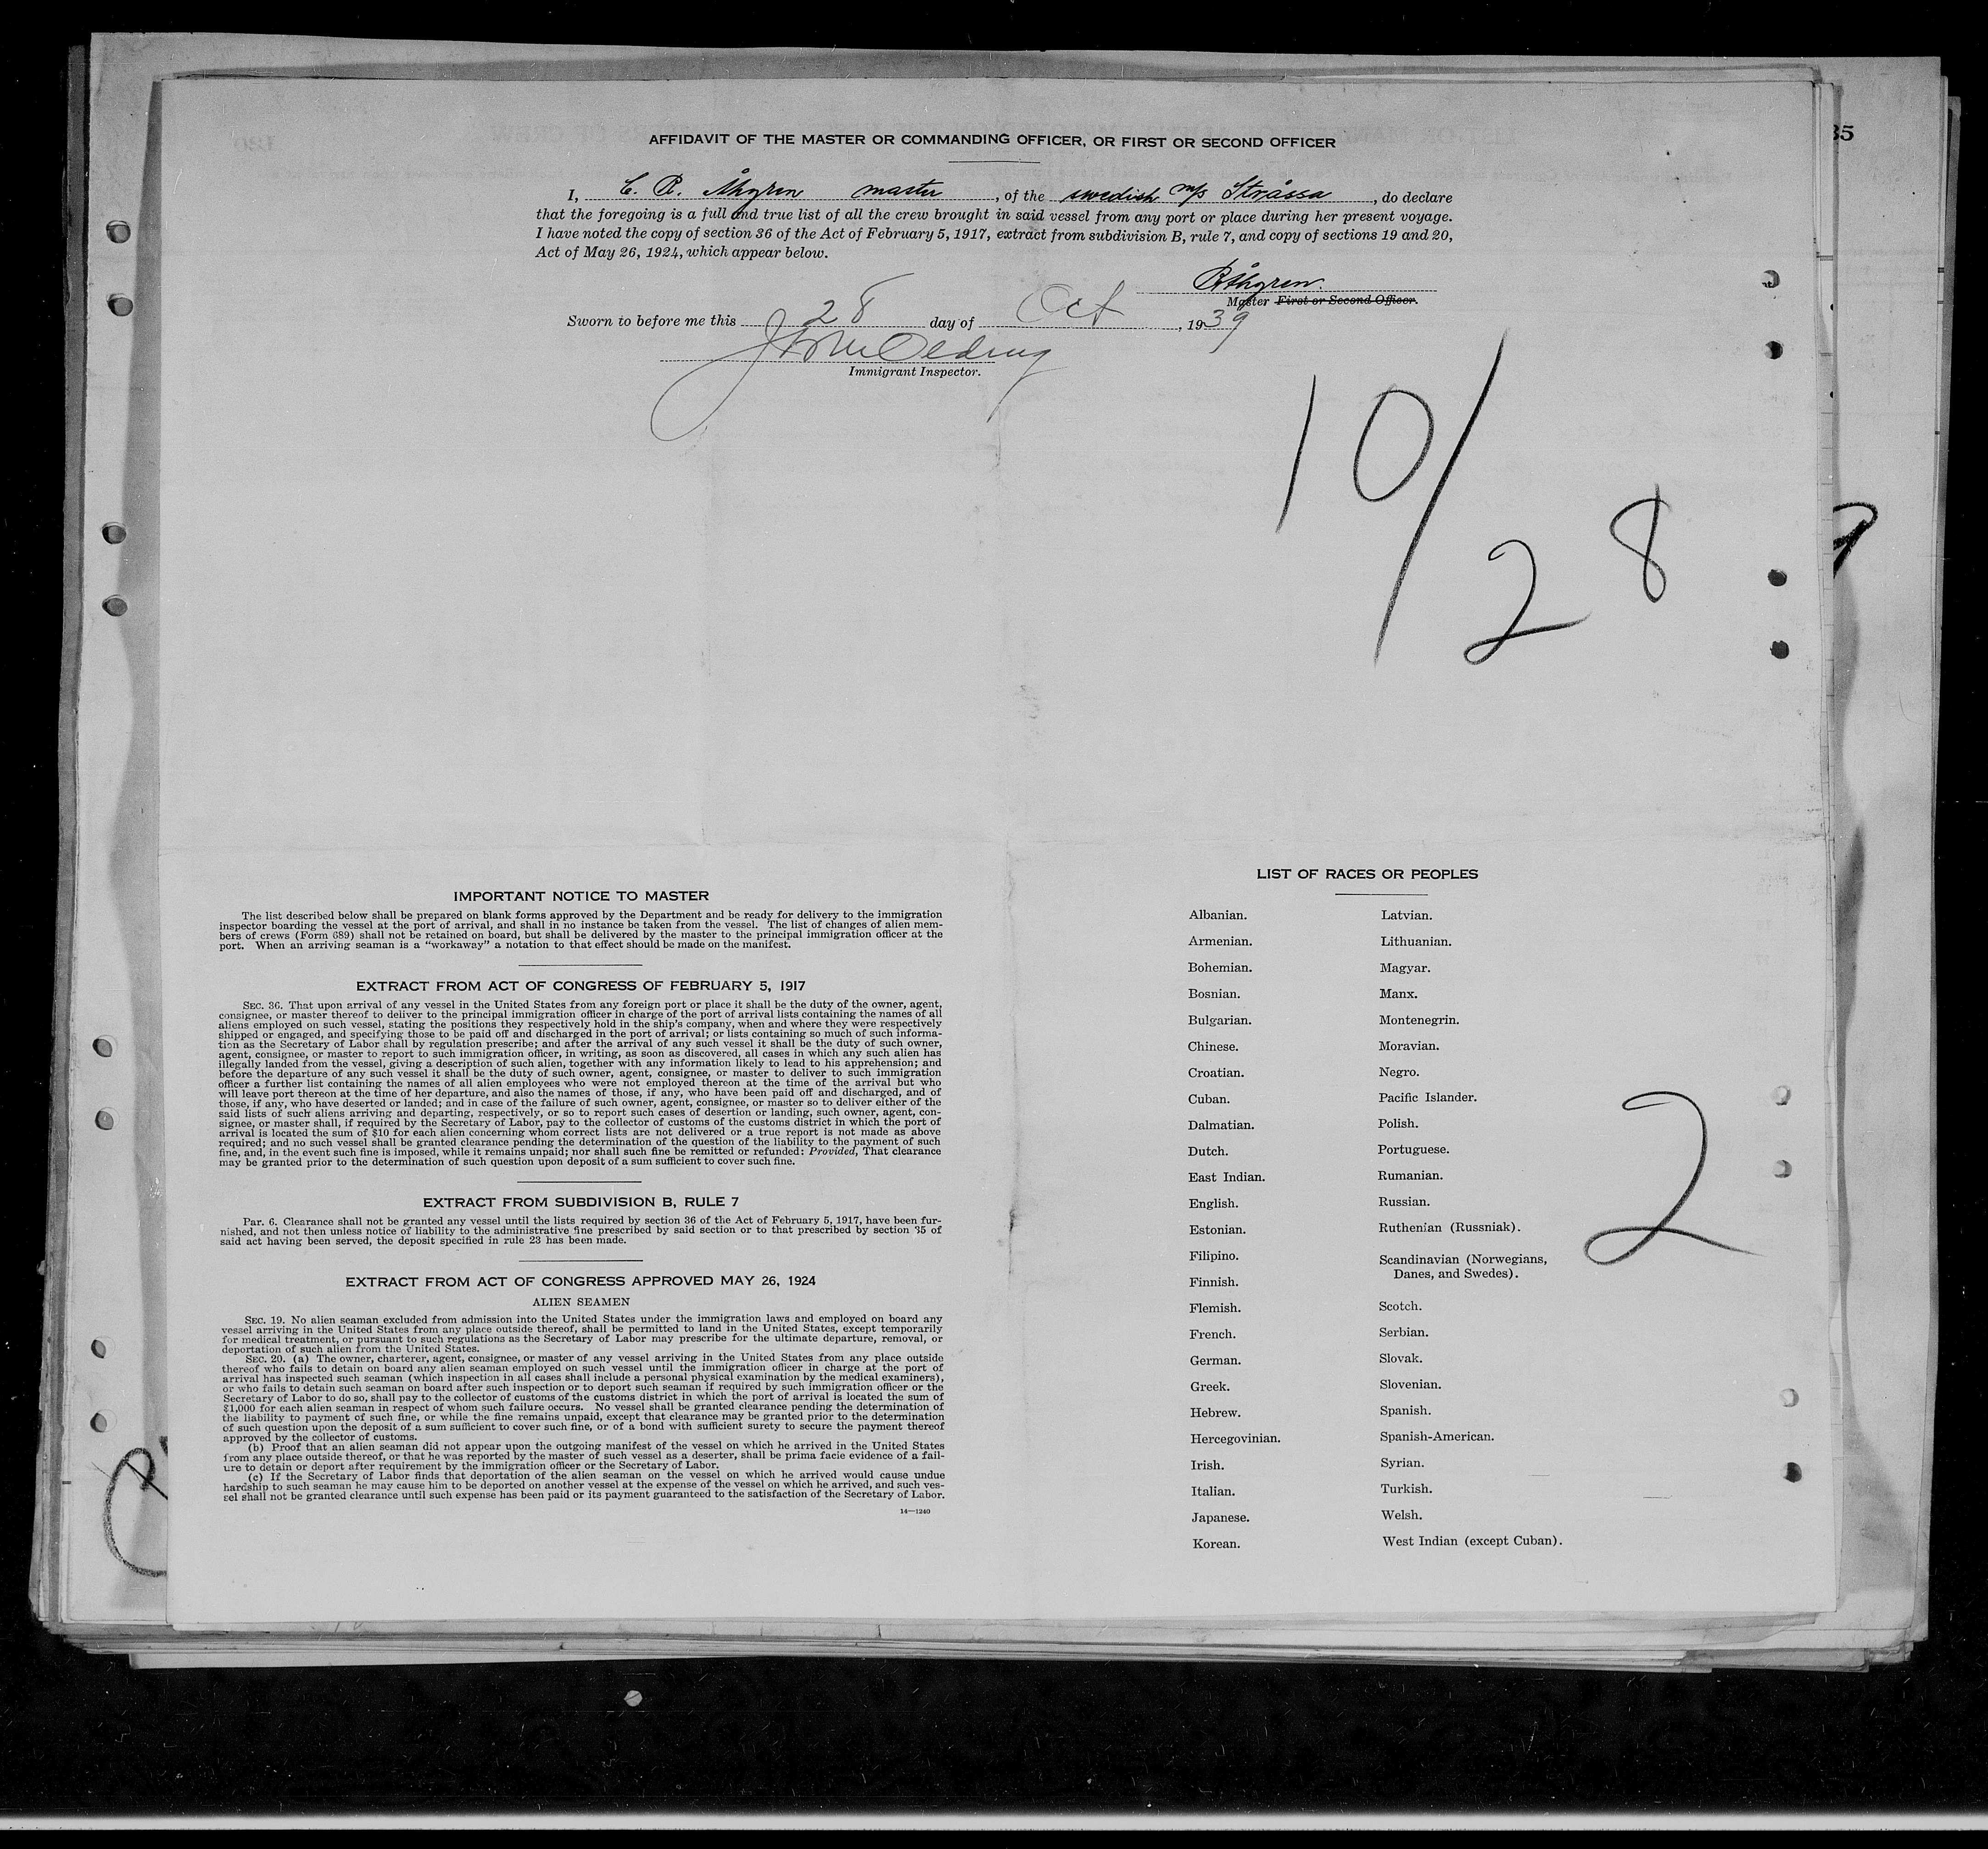 35
AFFIDAVIT OF THE MASTER OR COMMANDING OFFICER, OR FIRST OR SECOND OFFICER
I, C. R. Åhgren master, of the swedish m/s Stråssa, do declare
that the foregoing is a full and true list of all the crew brought in said vessel from any port or place during her present voyage.
I have noted the copy of section 36 of the Act of February 5, 1917, extract from subdivision B, rule 7, and copy of sections 19 and 20,
Act of May 26, 1924, which appear below.
RÅhgren.
Master First or Second Officer.
Sworn to before me this 28 day of Oct, 1939
Immigrant Inspector.
10/28
IMPORTANT NOTICE TO MASTER
The list described below shall be prepared on blank forms approved by the Department and be ready for delivery to the immigration
inspector boarding the vessel at the port of arrival, and shall in no instance be taken from the vessel. The list of changes of alien mem-
bers of crews (Form 689) shall not be retained on board, but shall be delivered by the master to the principal immigration officer at the
port. When an arriving seaman is a "workaway" a notation to that effect should be made on the manifest.
EXTRACT FROM ACT OF CONGRESS OF FEBRUARY 5, 1917
SEC. 36. That upon arrival of any vessel in the United States from any foreign port or place it shall be the duty of the owner, agent,
consignee, or master thereof to deliver to the principal immigration officer in charge of the port of arrival lists containing the names of all
aliens employed on such vessel, stating the positions they respectively hold in the ship's company, when and where they were respectively
shipped or engaged, and specifying those to be paid off and discharged in the port of arrival; or lists containing so much of such informa-
tion as the Secretary of Labor shall by regulation prescribe; and after the arrival of any such vessel it shall be the duty of such owner,
agent, consignee, or master to report to such immigration officer, in writing, as soon as discovered, all cases in which any such alien has
illegally landed from the vessel, giving a description of such alien, together with any information likely to lead to his apprehension; and
before the departure of any such vessel it shall be the duty of such owner, agent, consignee, or master to deliver to such immigration
officer a further list containing the names of all alien employees who were not employed thereon at the time of the arrival but who
will leave port thereon at the time of her departure, and also the names of those, if any, who have been paid off and discharged, and of
those, if any, who have deserted or landed; and in case of the failure of such owner, agent, consignee, or master so to deliver either of the
said lists of such aliens arriving and departing, respectively, or so to report such cases of desertion or landing, such owner, agent, con-
signee, or master shall, if required by the Secretary of Labor, pay to the collector of customs of the customs district in which the port of
arrival is located the sum of $10 for each alien concerning whom correct lists are not delivered or a true report is not made as above
required; and no such vessel shall be granted clearance pending the determination of the question of the liability to the payment of such
fine, and, in the event such fine is imposed, while it remains unpaid; nor shall such fine be remitted or refunded: Provided, That clearance
may be granted prior to the determination of such question upon deposit of a sum sufficient to cover such fine.
EXTRACT FROM SUBDIVISION B, RULE 7
Par. 6. Clearance shall not be granted any vessel until the lists required by section 36 of the Act of February 5, 1917, have been fur-
nished, and not then unless notice of liability to the administrative fine prescribed by said section or to that prescribed by section 35 of
said act having been served, the deposit specified in rule 23 has been made.
EXTRACT FROM ACT OF CONGRESS APPROVED MAY 26, 1924
ALIEN SEAMEN
SEC. 19. No alien seaman excluded from admission into the United States under the immigration laws and employed on board any
vessel arriving in the United States from any place outside thereof, shall be permitted to land in the United States, except temporarily
for medical treatment, or pursuant to such regulations as the Secretary of Labor may prescribe for the ultimate departure, removal, or
deportation of such alien from the United States.
SEC. 20. (a) The owner, charterer, agent, consignee, or master of any vessel arriving in the United States from any place outside
thereof who fails to detain on board any alien seaman employed on such vessel until the immigration officer in charge at the port of
arrival has inspected such seaman (which inspection in all cases shall include a personal physical examination by the medical examiners),
or who fails to detain such seaman on board after such inspection or to deport such seaman if required by such immigration officer or the
Secretary of Labor to do so, shall pay to the collector of customs of the customs district in which the port of arrival is located the sum of
$1,000 for each alien seaman in respect of whom such failure occurs. No vessel shall be granted clearance pending the determination of
the liability to payment of such fine, or while the fine remains unpaid, except that clearance may be granted prior to the determination
of such question upon the deposit of a sum sufficient to cover such fine, or of a bond with sufficient surety to secure the payment thereof
approved by the collector of customs.
(b) Proof that an alien seaman did not appear upon the outgoing manifest of the vessel on which he arrived in the United States
from any place outside thereof, or that he was reported by the master of such vessel as a deserter, shall be prima facie evidence of a fail-
ure to detain or deport after requirement by the immigration officer or the Secretary of Labor.
(c) If the Secretary of Labor finds that deportation of the alien seaman on the vessel on which he arrived would cause undue
hardship to such seaman he may cause him to be deported on another vessel at the expense of the vessel on which he arrived, and such ves-
sel shall not be granted clearance until such expense has been paid or its payment guaranteed to the satisfaction of the Secretary of Labor.
14—1240
LIST OF RACES OR PEOPLES
Albanian.
Armenian.
Bohemian.
Bosnian.
Bulgarian.
Chinese.
Croatian.
Cuban.
Dalmatian.
Dutch.
East Indian.
English.
Estonian.
Filipino.
Finnish.
Flemish.
French.
German.
Greek.
Hebrew.
Hercegovinian.
Irish.
Italian.
Japanese.
Korean.
Latvian.
Lithuanian.
Magyar.
Manx.
Montenegrin.
Moravian.
Negro.
Pacific Islander.
Polish.
Portuguese.
Rumanian.
Russian.
Ruthenian (Russniak).
Scandinavian (Norwegians,
Danes, and Swedes).
Scotch.
Serbian.
Slovak.
Slovenian.
Spanish.
Spanish-American.
Syrian.
Turkish.
Welsh.
West Indian (except Cuban).
2